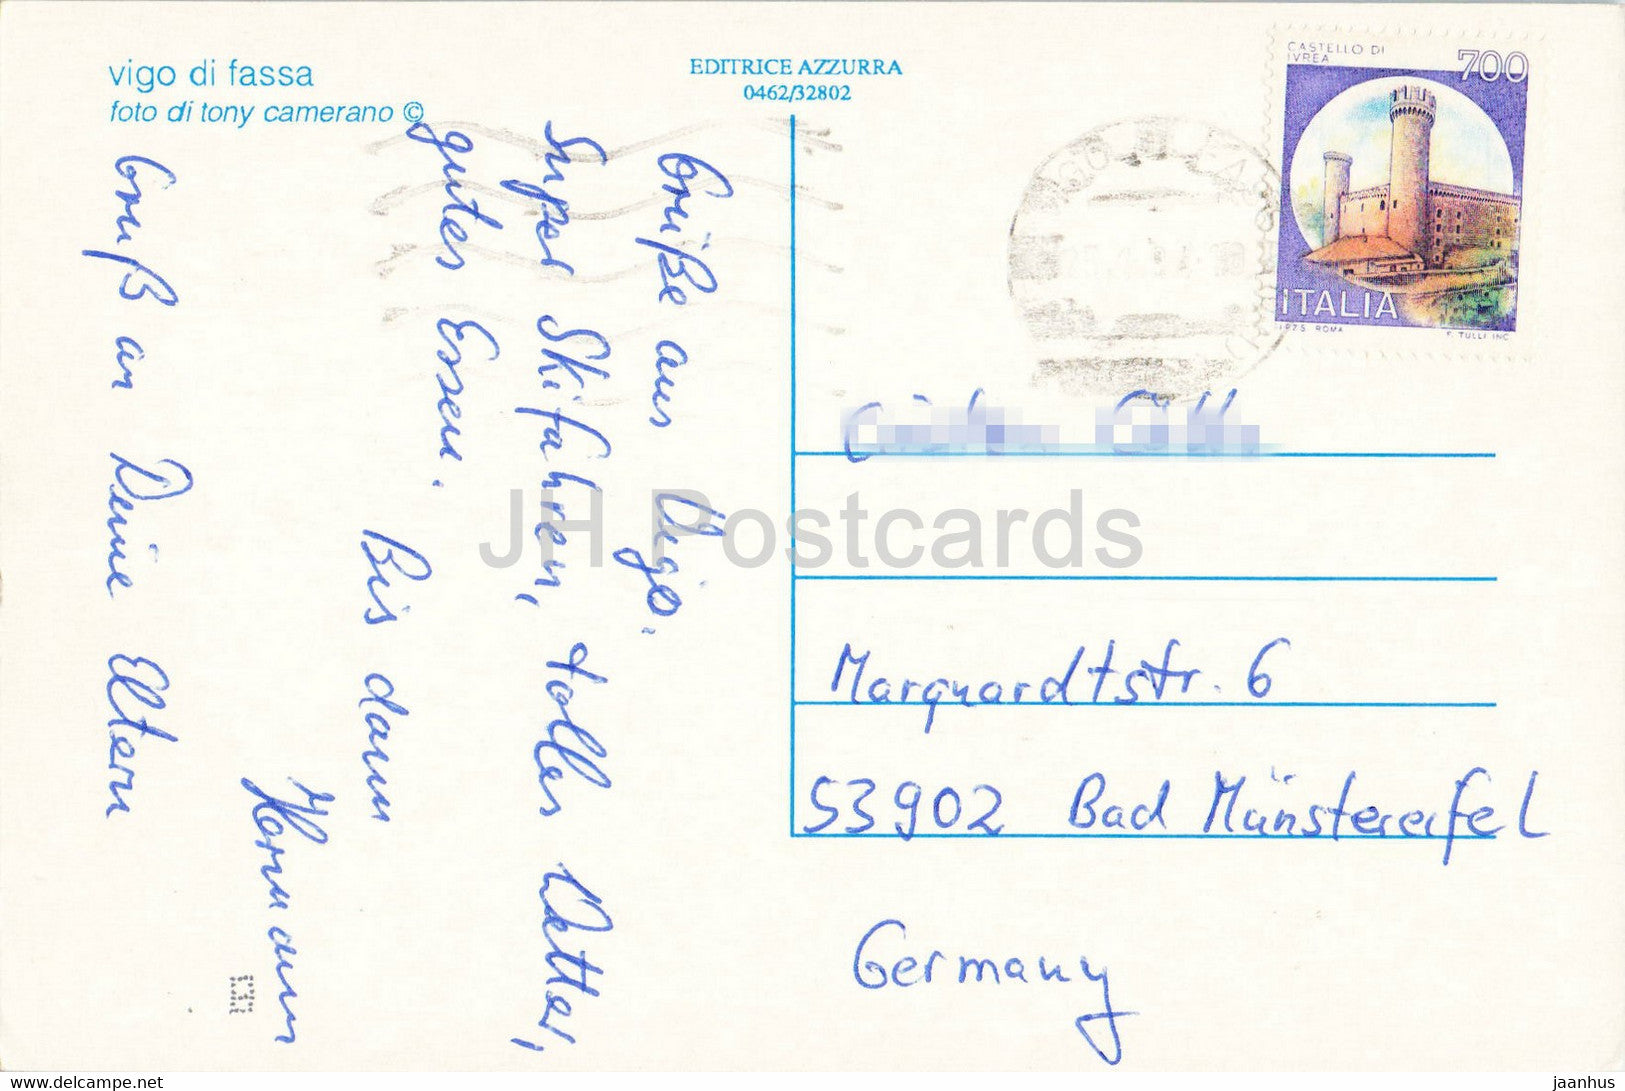 vigo di fassa
foto di tony camerano ©
EDITRICE AZZURRA
0462/32802
CASTELLO DI
IVREA
700
ITALIA
ROMA
F. TULLI INC
Grüße aus Vigo.
Super Skifahren, tolles Wetter,
gutes Essen.
Bis dann
Hermann
Gruß an Deine Eltern
Marquardtstr. 6
53902 Bad Münstereifel
Germany
JH Postcards
https://www.delcampe.net
jaanhus